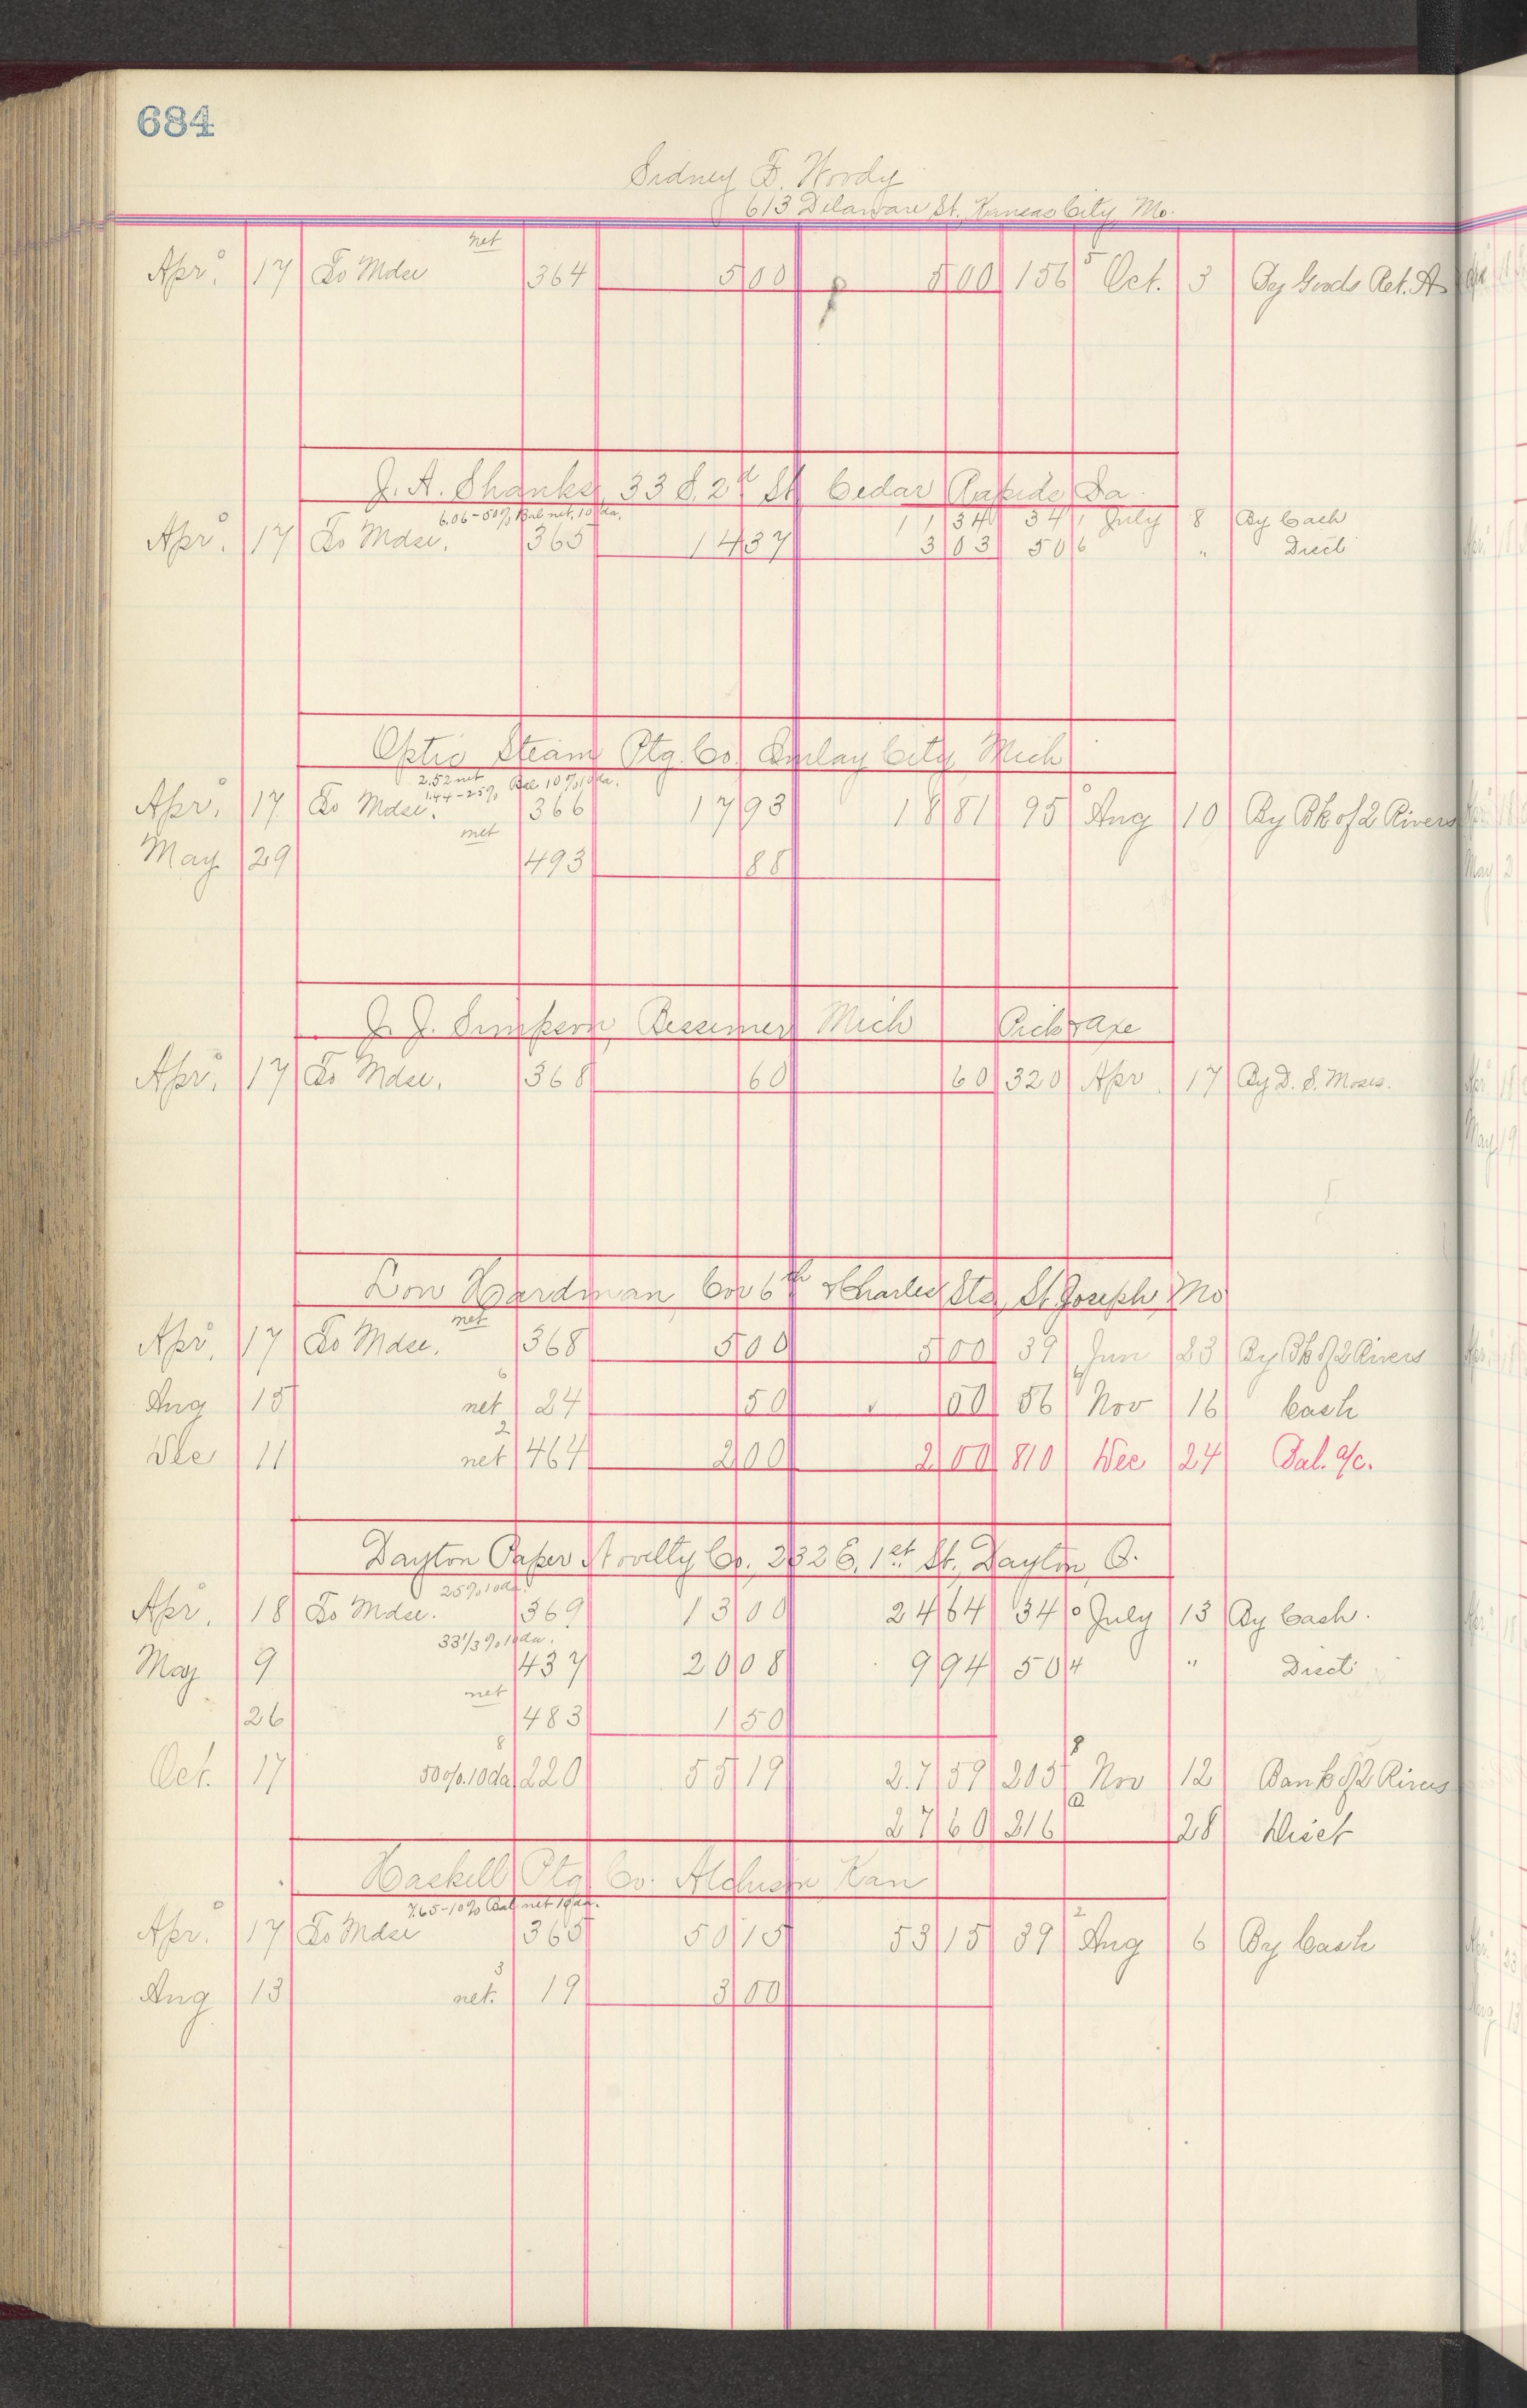 684
Sidney F. Woody
613 Delaware St, Kansas City Mo.
net
Apr. 17 To Mdse 364 5 00 5 00 156 5 Oct. 3 By Goods Ret.
J. A. Shanks, 33 S. 2d St Cedar Rapids Ia.
6.06-50% Bal net, 10 da.
11 34 34 1 July 8 By Cash
Apr. 17 To Mdse. 365 14 37 3 03 50 6 " Disct
Optic Steam Ptg. Co. Imlay City Mich
2.52 net
1.44-25% Bal 10% 10 da.
Apr. 17 To Mdse. 366 17 93 18 81 95 0 Aug 10 By Bk of 2 Rivers
net
May 29 493 88
J. J. Simpson, Bessemer Mich Pick & Axe
Apr. 17 To Mdse. 368 60 60 320 Apr. 17 By D. S. Moses.
Lon Hardman, Cor 6th & Charles Sts, St. Joseph, Mo
net
Apr. 17 To Mdse. 368 5 00 5 00 39 Jun 23 By Bk of 2 Rivers
6
Aug 15 net 24 50 ✓ 50 56 Nov 16 Cash
2
Dec 11 net 464 2 00 2 00 810 Dec 24 Bal. a/c.
Dayton Paper Novelty Co., 232 E. 1st St., Dayton, O.
25% 10 da.
Apr. 18 To Mdse. 369 13 00 24 64 34 0 July 13 By Cash.
33 1/3% 10 da.
May 9 437 20 08 9 94 50 4 " Disct
net
26 483 1 50
8
Oct. 17 50%.10 da 220 55 19 27 59 205 8 Nov 12 Bank of 2 Rivers
27 60 216 28 Disct
Haskell Ptg Co. Atchison Kan
7.65-10% Bal net 10 da.
Apr. 17 To Mdse 365 50 15 53 15 39 2 Aug 6 By Cash
3
Aug 13 net. 19 3 00